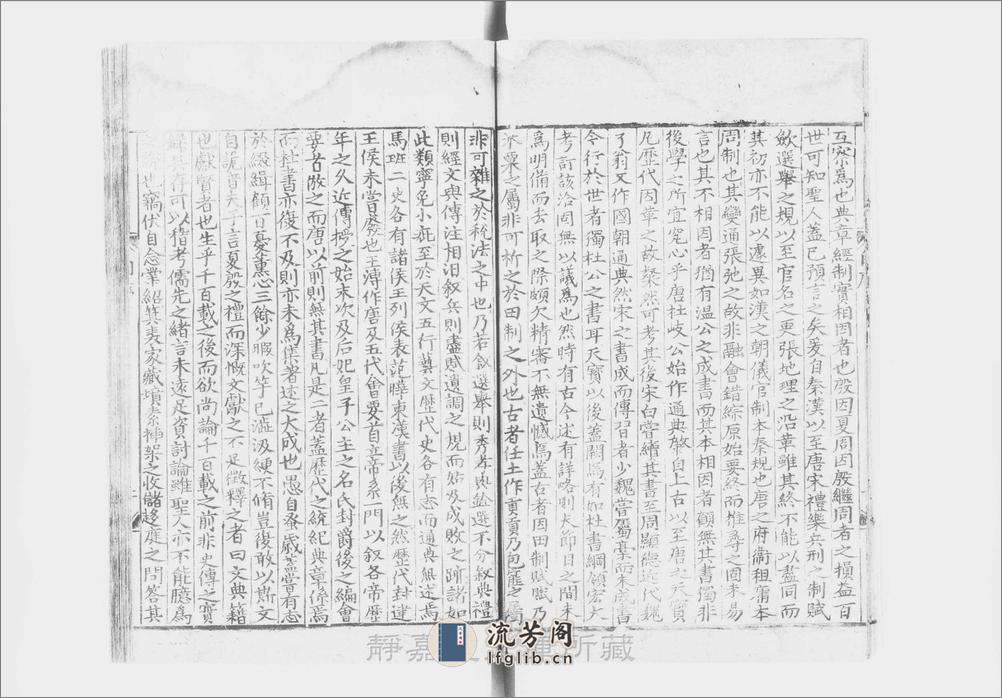 互察爲也典章經制實相因者也殷因夏周因殷繼周者之損益百
世可知聖人蓋已預言之矣爰自秦漢以至唐宋禮樂兵刑之制賦
歛選舉之規以至官名之更張地理之沿革雖其終不能以盡同而
其初亦不能以遽異如漢之朝儀官制本秦規也唐之府衛租庸本
周制也其變通張弛之故非融會錯綜原始要終而推尋之固未易
言也其不相因者猶有溫公之成書而其本相因者顧無其書獨非
後學之所宜究心乎唐杜岐公始作通典肇自上古以至唐之天寶
凡歷代因革之故粲然可考其後宋白嘗續其書至周顯德近代魏
了翁又作國朝通典然宋之書成而傳習者少魏嘗屬藁而未成書
今行於世者獨杜公之書耳天寶以後蓋闕焉有如杜書綱領宏大
考訂該洽固無以議爲也然時有古今述有詳略則夫節目之間未
爲明備而去取之際頗欠精審不無遺憾焉蓋古者因田制賦賦乃
米粟之屬非可析之於田制之外也古者任土作貢貢乃包篚之屬
非可雜之於稅法之中也乃若敘選舉則秀孝與銓選不分敘典禮
則經文與傳注相汨叙兵則盡賦遺調之規而姑及成敗之跡諸如
此類寧免小疵至於天文五行藝文歷代史各有志而通典無述焉
馬班二史各有諸侯王列侯表范曄東漢書以後無之然歷代封建
王侯未嘗廢也王溥作唐及五代會要首立帝系一門以叙各帝歷
年之久近傳授之始末次及后妃皇子公主之名氏封爵後之編會
要者倣之而唐以前則無其書凡是二者蓋歷代之統紀典章係焉
而杜書亦復不及則亦未爲集著述之大成也愚自蚤歲蓋嘗有志
於綴緝顧百憂薰心三餘少暇吹竽已澁汲綆不脩豈復敢以斯文
自詭昔夫子言夏殷之禮而深慨文獻之不足徵釋之者曰文典籍
也獻賢者也生乎千百載之後而欲尚論千百載之前非史傳之實
錄具存可以稽考儒先之緒言未遠足資討論雖聖人亦不能臆爲
也竊伏自念業紹箕裘家藏墳索插架之收儲趨庭之問答其
靜嘉
所藏
流芳阁
lfglib.cn